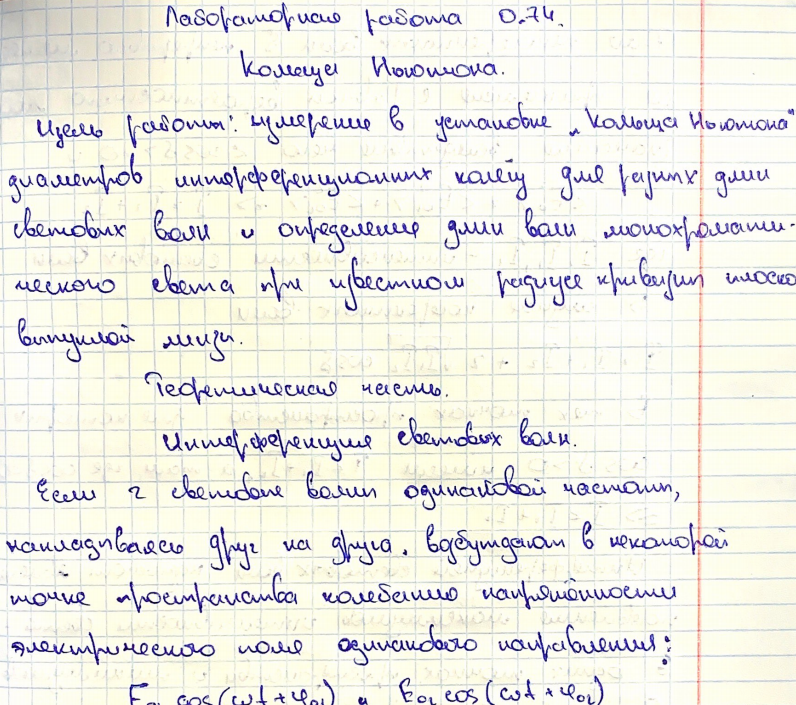 Лабораторная работа 0.74.
Кольца Ньютона.
Цель работы: измерение в установке „Кольца Ньютона"
диаметров интерференционных колец для разных длин
световых волн и определение длин волн монохромати-
ческого света при известном радиусе кривизны плоско
выпуклой линзы.
Теоретическая часть.
Интерференция световых волн.
Если 2 световые волны одинаковой частоты,
накладываясь друг на друга, возбуждают в некоторой
точке пространства колебания напряжённости
электрического поля одинакового направления:
E₀₁ cos(ωt + φ₀₁) и E₀₂ cos(ωt + φ₀₂)